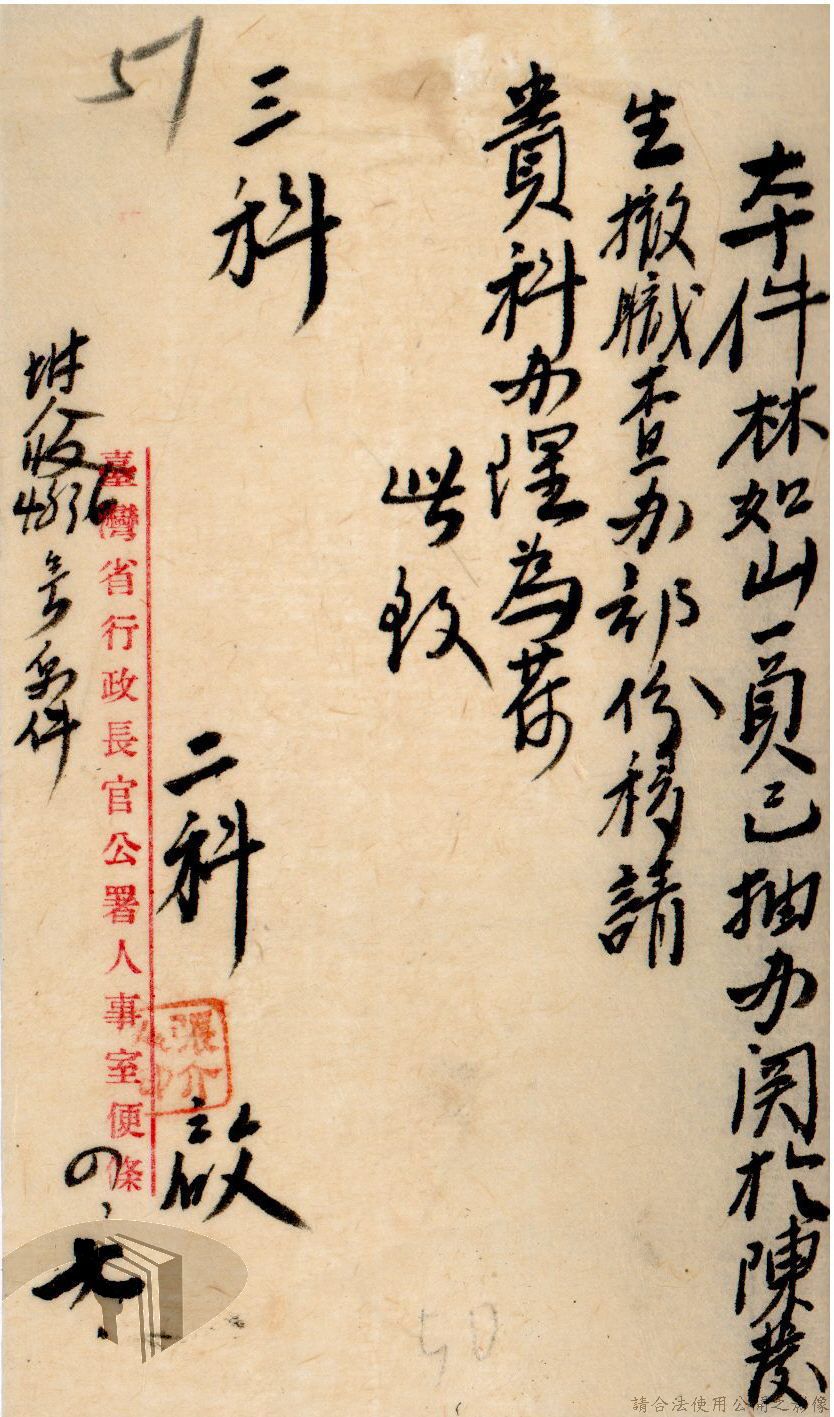 本件林如山一員已抽办関於陳發
生撤職查办部份移請
貴科办理為荷
此致
三科
二科
啟
四、七、
臺灣省行政長官公署人事室便條
張介
57
50
請合法使用公開之影像